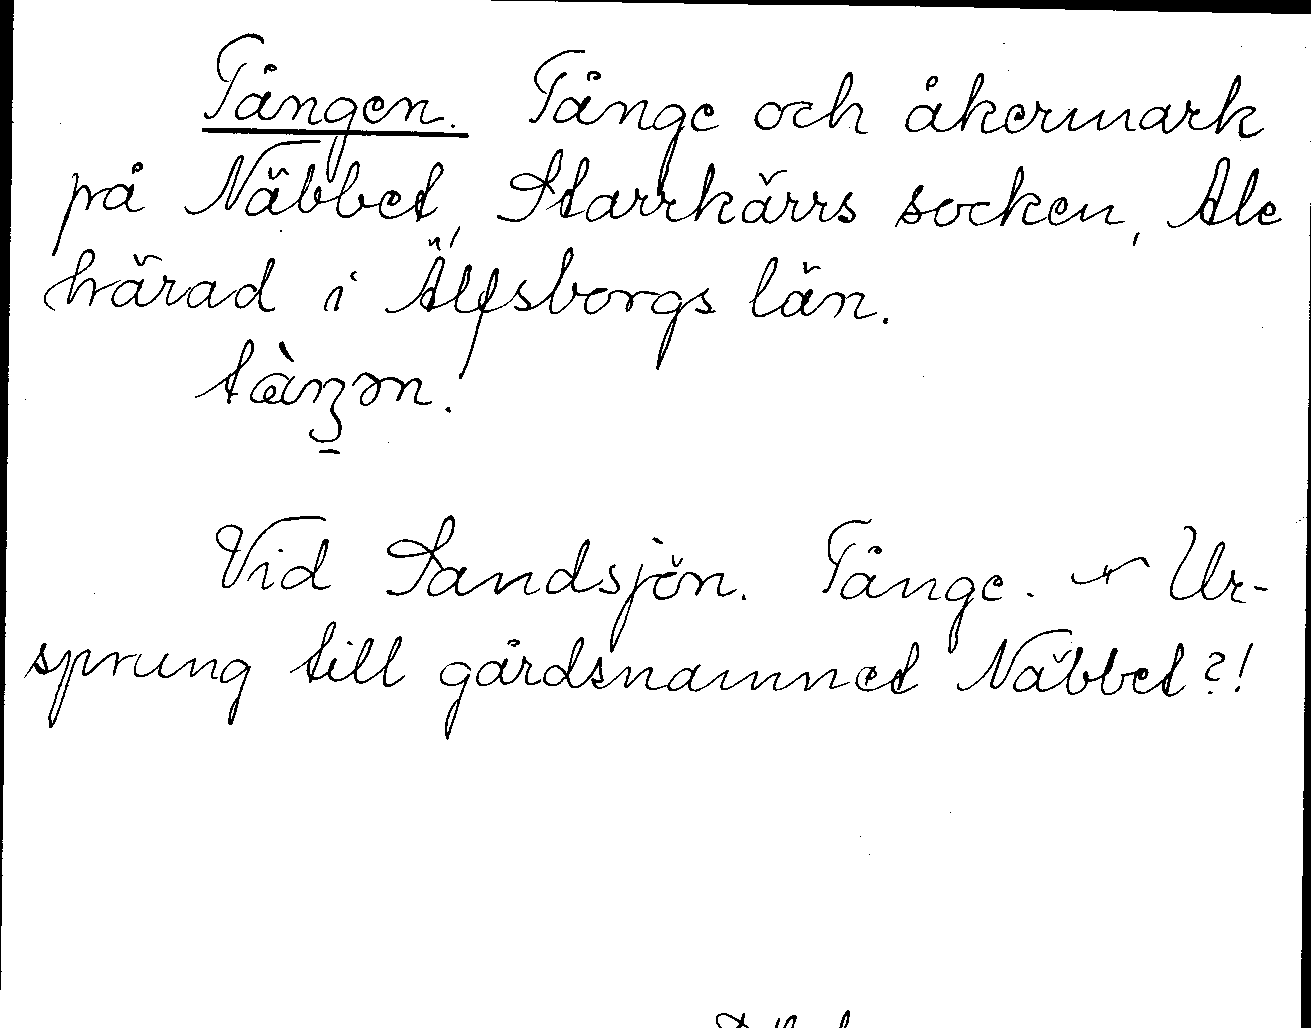 Tången. Tånge och åkermark
på Näbbet, Starrkärrs socken, Ale
härad i Älfsborgs län.
Vid Sandsjön. Tånge. Ur-
sprung till gårdsnamnet Näbbet?!